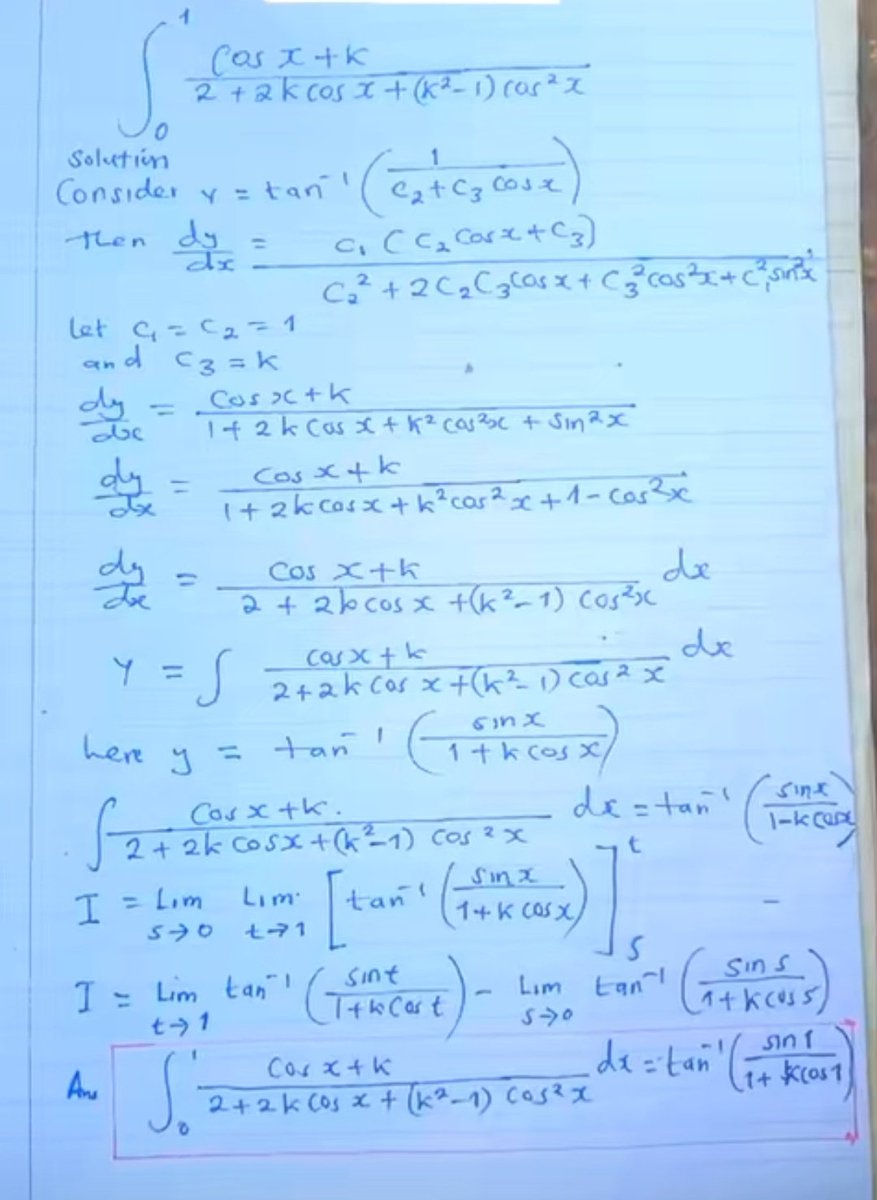 ∫₀¹ (cos x + k)/(2 + 2k cos x + (k² - 1) cos² x)
Solution
Consider y = tan⁻¹ (1/(c₂ + c₃ cos x))
Then dy/dx = c₁ (c₂ cos x + c₃)/(c₂² + 2c₂c₃ cos x + c₃² cos² x + c₁² sin² x)
let c₁ = c₂ = 1
and c₃ = k
dy/dx = (cos x + k)/(1 + 2k cos x + k² cos² x + sin² x)
dy/dx = (cos x + k)/(1 + 2k cos x + k² cos² x + 1 - cos² x)
dy/dx = (cos x + k)/(2 + 2k cos x + (k² - 1) cos² x) dx
Y = ∫ (cos x + k)/(2 + 2k cos x + (k² - 1) cos² x) dx
here y = tan⁻¹ (sin x/(1 + k cos x))
∫ (cos x + k.)/(2 + 2k cos x + (k² - 1) cos² x) dx = tan⁻¹ (sin x/(1 - k cos x))
I = Lim s→0 Lim t→1 [tan⁻¹ (sin x/(1 + k cos x))]ₛᵗ
I = Lim t→1 tan⁻¹ (sin t/(1 + k cos t)) - Lim s→0 tan⁻¹ (sin s/(1 + k cos s))
Ans ∫₀¹ (cos x + k)/(2 + 2k cos x + (k² - 1) cos² x) dx = tan⁻¹ (sin 1/(1 + k cos 1))